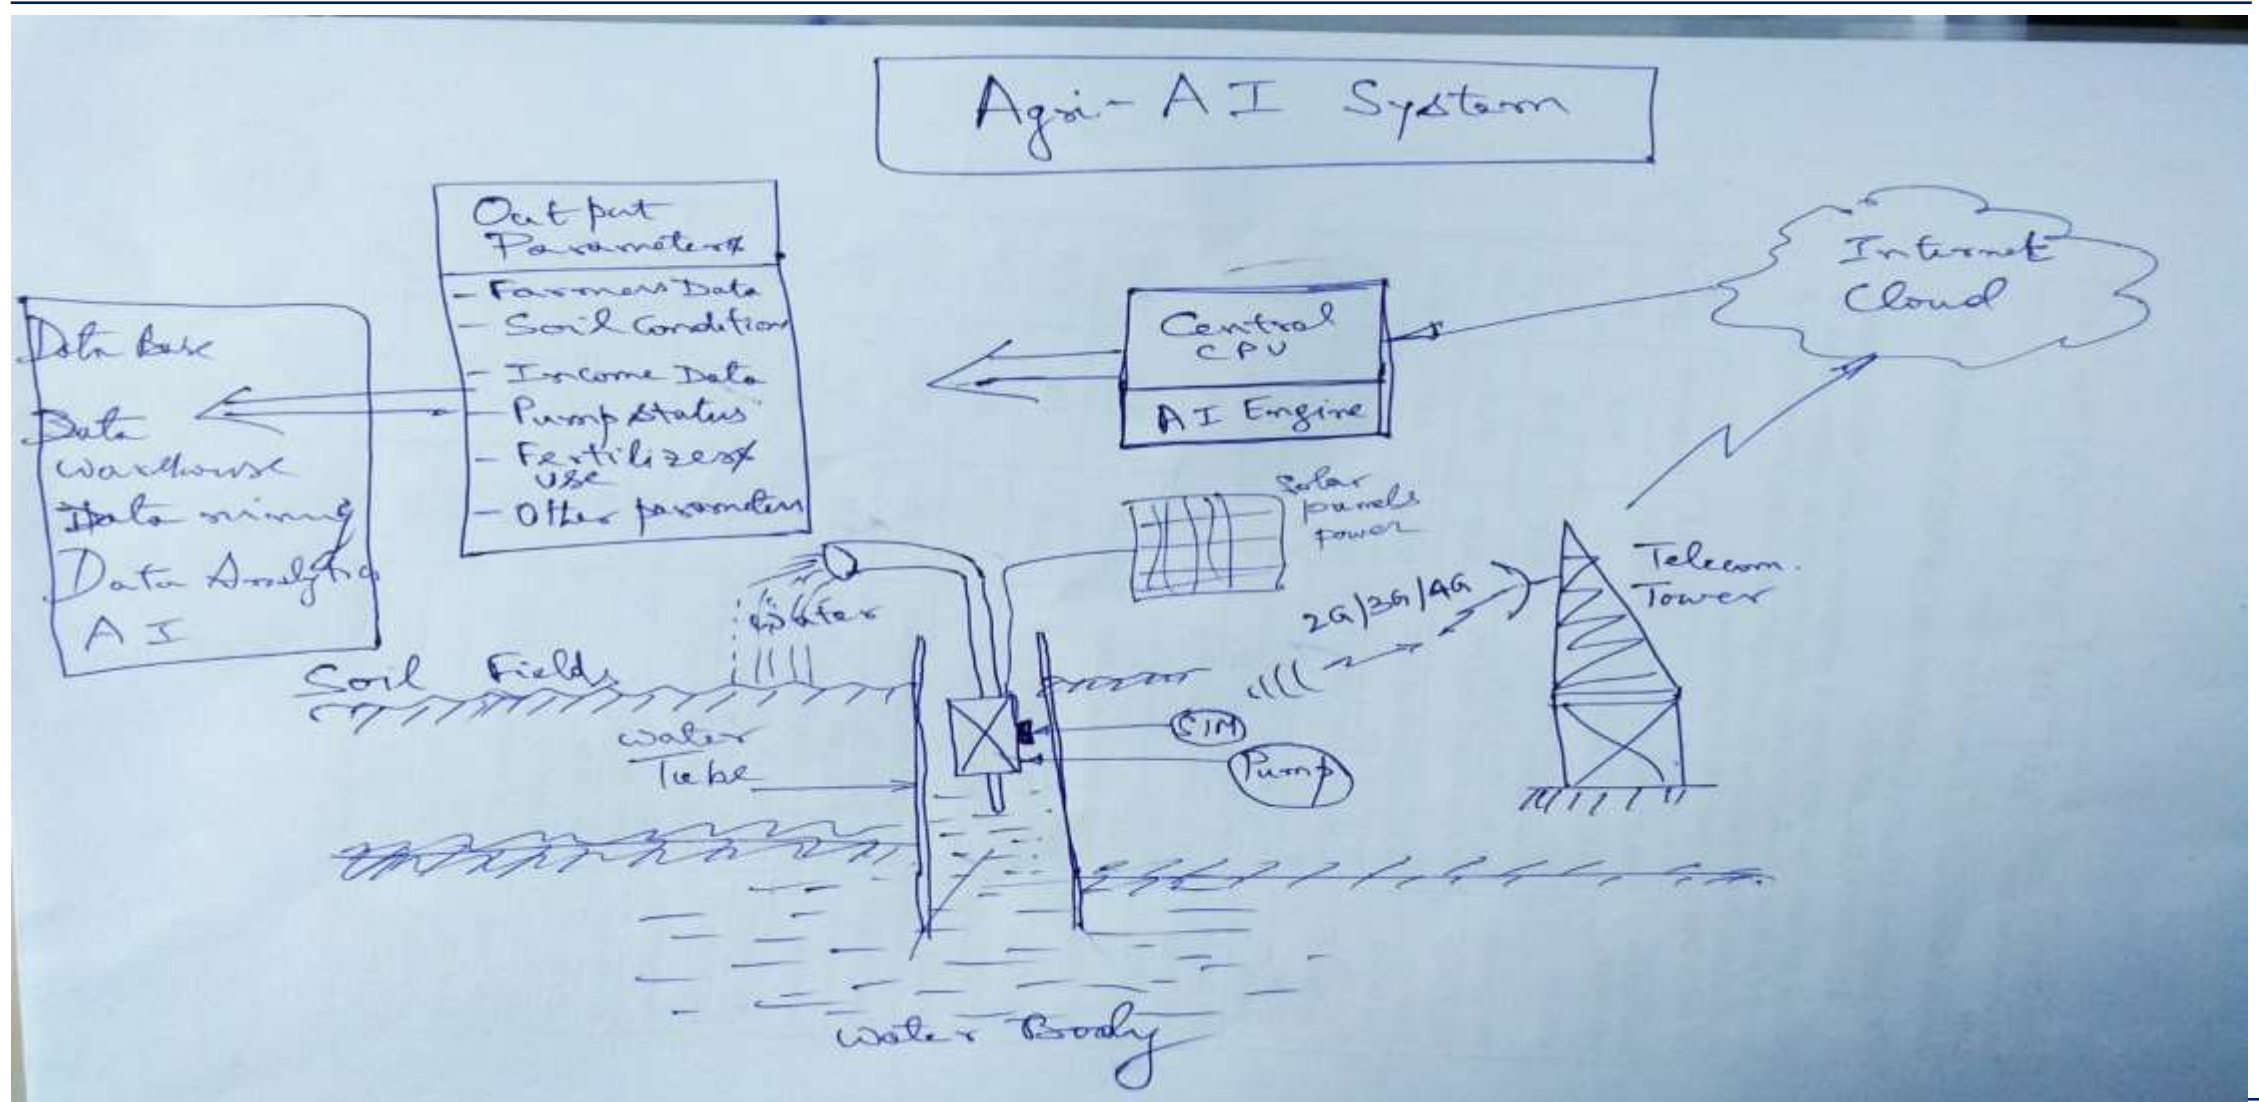 Agri-AI System
Output
Parameters
- Farmers Data
- Soil Condition
- Income Data
- Pump Status
- Fertilizers
use
- Other parameters
Data Base
Data
warehouse
Data mining
Data Analytics
AI
Central
CPU
AI Engine
Internet
Cloud
Solar
panels
power
2G/3G/4G
Telecom.
Tower
Water
Soil Fields
Water
Tube
SIM
Pump
Water Body